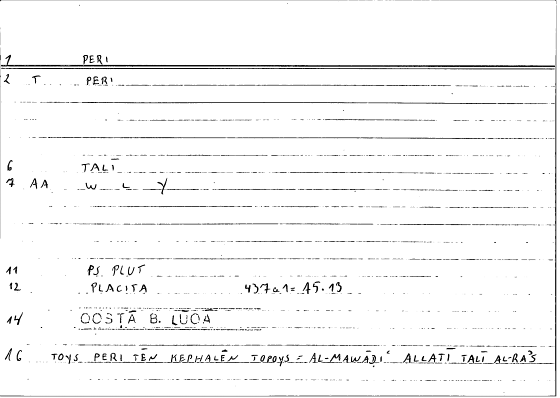 1 PERI
2 T PERI
6 TALĪ
7 AA W L Y
11 PS PLUT
12 PLACITA 437a1= 15.13
14 QOSṬĀ B. LŪQĀ
16 TOYS PERI TĒN KEPHALĒN TOPOYS = AL-MAWĀḌIʿ ALLATĪ TALĪ AL-RAʾS